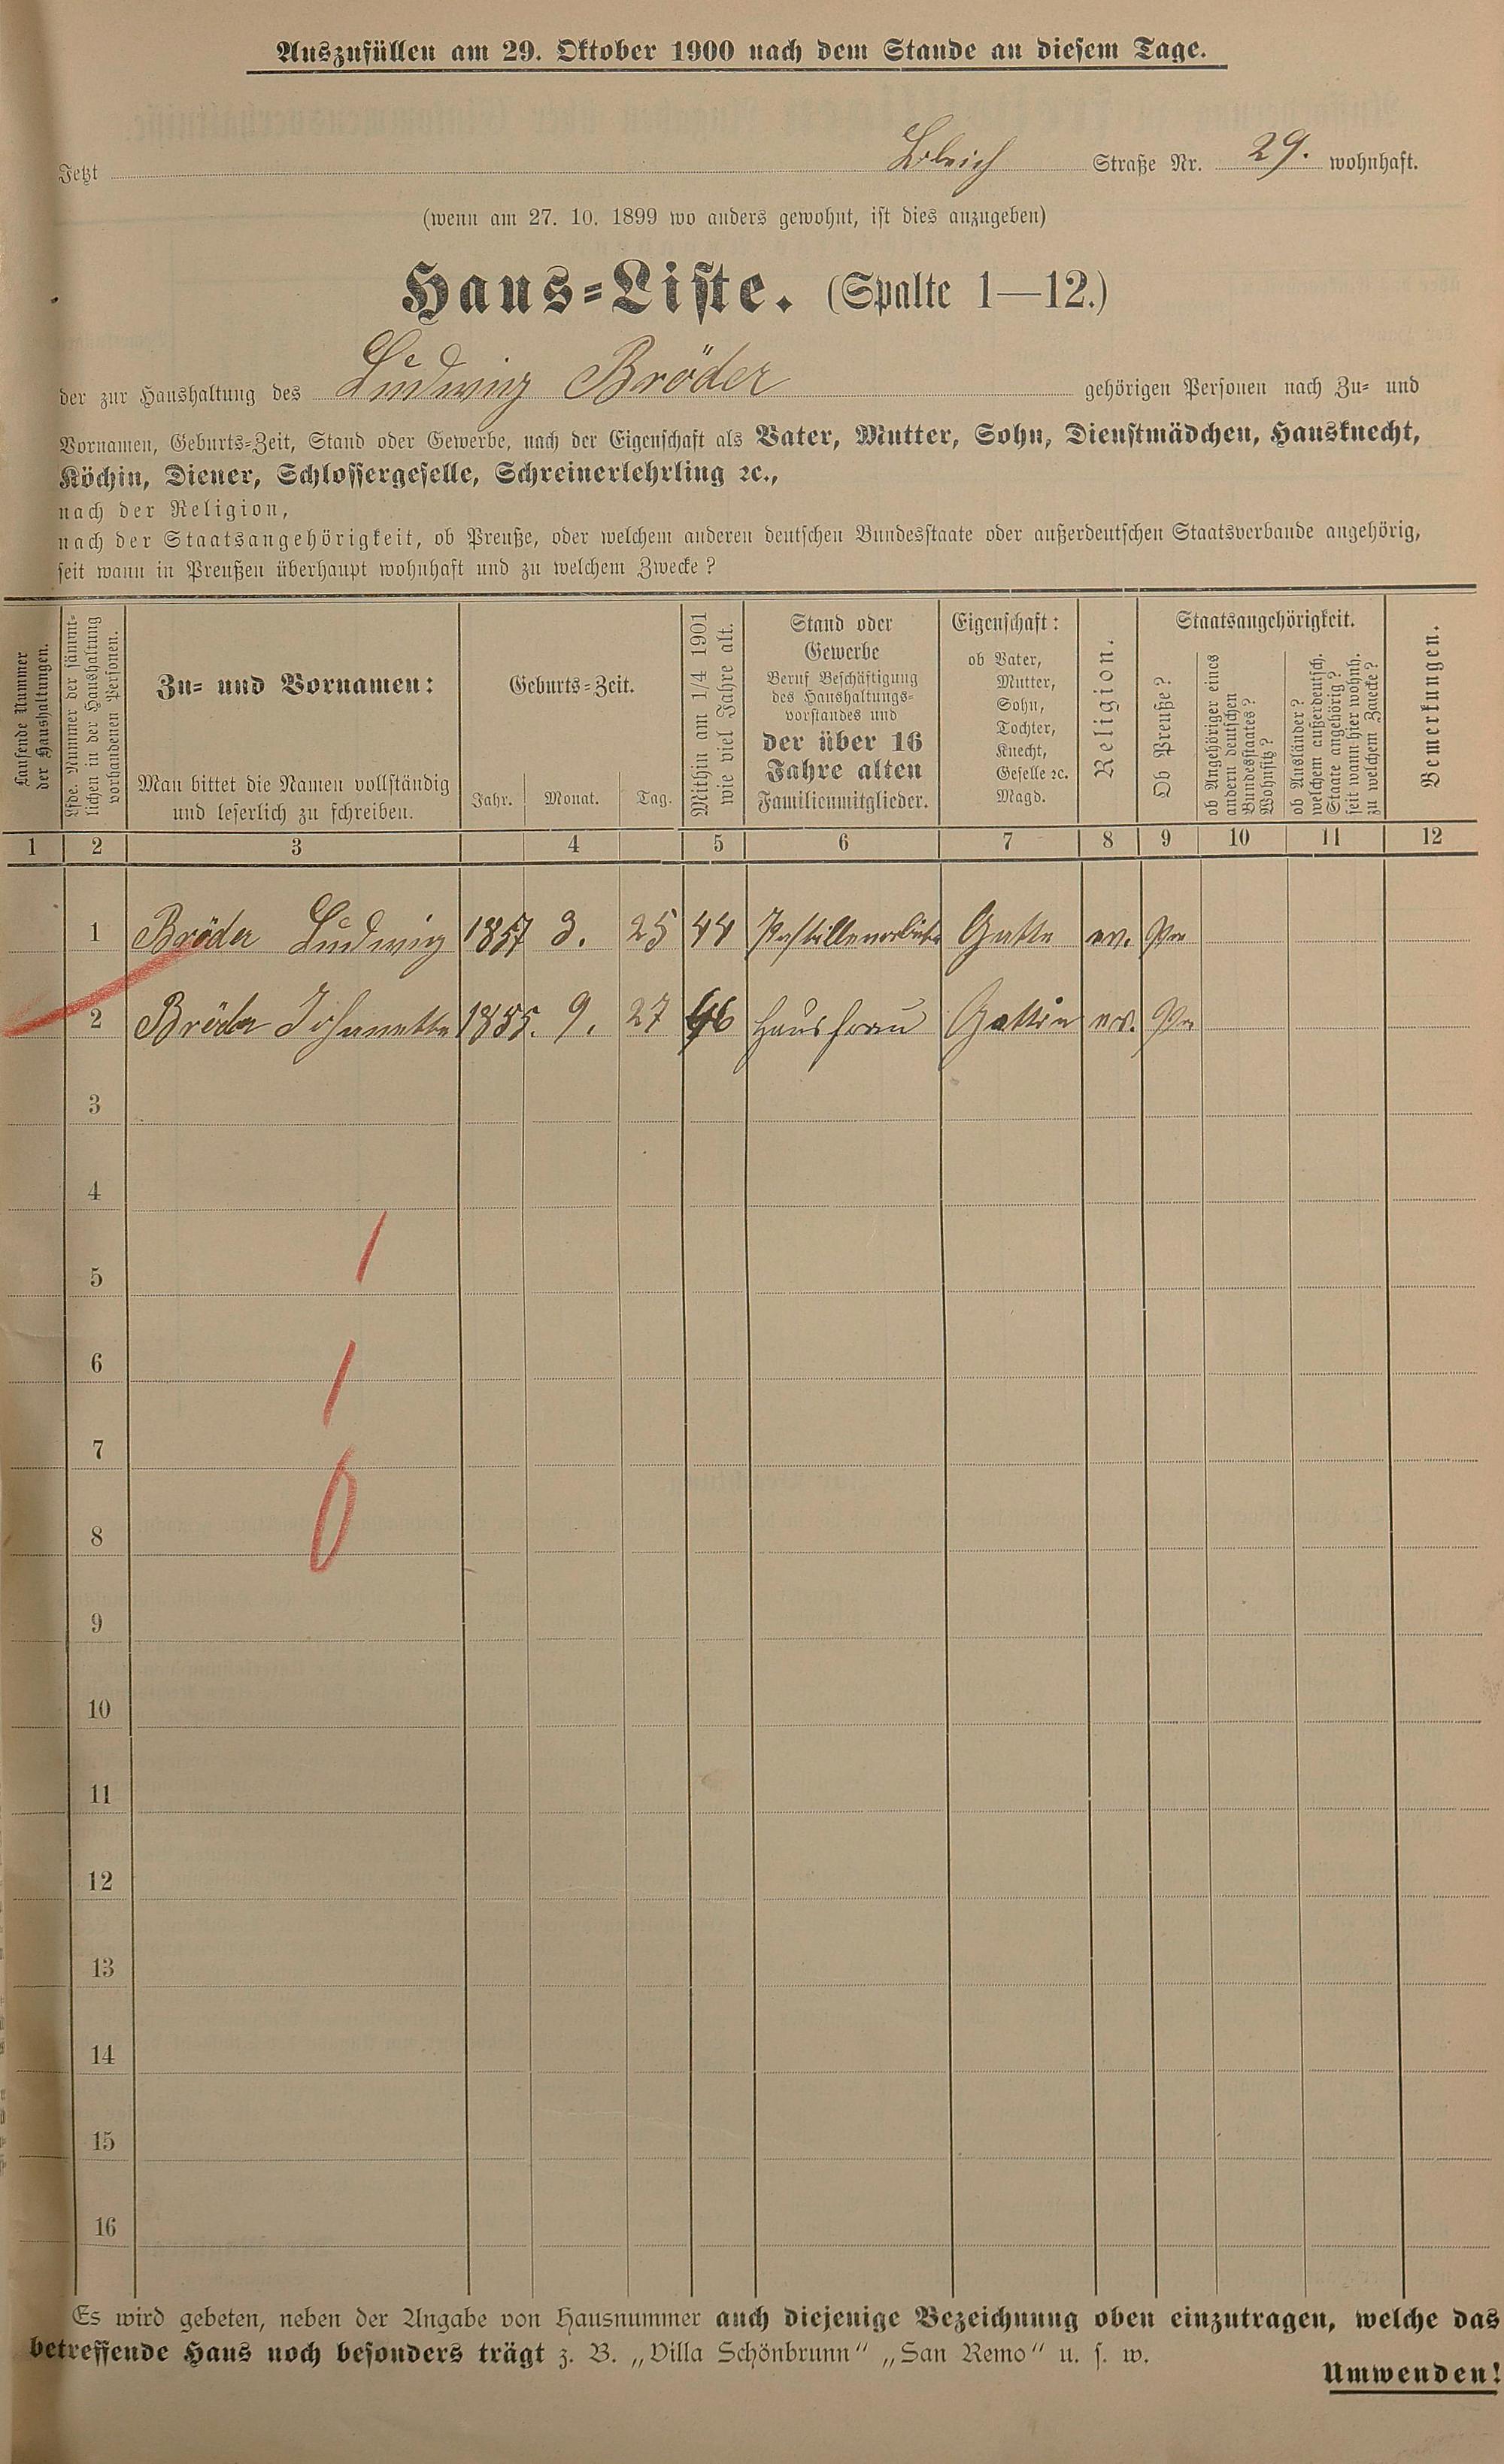 Auszufüllen am 29. Oktober 1900 nach dem Stande an diesem Tage.
Jetzt Straße Nr. 29. wohnhaft.
(wenn am 27. 10. 1899 wo anders gewohnt, ist dies anzugeben)
Haus-Liste. (Spalte 1—12.)
der zur Haushaltung des Ludwig Bröder gehörigen Personen nach Zu- und
Vornamen, Geburts-Zeit, Stand oder Gewerbe, nach der Eigenschaft als Vater, Mutter, Sohn, Dienstmädchen, Hausknecht,
Köchin, Diener, Schlossergeselle, Schreinerlehrling ꝛc.,
nach der Religion,
nach der Staatsangehörigkeit, ob Preuße, oder welchem anderen deutschen Bundesstaate oder außerdeutschen Staatsverbande angehörig,
seit wann in Preußen überhaupt wohnhaft und zu welchem Zwecke?
Laufende Nummer
der Haushaltungen.
Lfde. Nummer der sämmt-
lichen in der Haushaltung
vorhandenen Personen.
Zu- und Vornamen:
Man bittet die Namen vollständig
und leserlich zu schreiben.
Geburts-Zeit.
Jahr. Monat. Tag.
Mithin am 1/4 1901
wie viel Jahre alt.
Stand oder
Gewerbe
Beruf Beschäftigung
des Haushaltungs-
vorstandes und
der über 16
Jahre alten
Familienmitglieder.
Eigenschaft:
ob Vater,
Mutter,
Sohn,
Tochter,
Knecht,
Geselle ꝛc.
Magd.
Religion.
Staatsangehörigkeit.
Ob Preuße?
ob Angehöriger eines
andern deutschen
Bundesstaates?
Wohnsitz?
ob Ausländer?
welchem außerdeutsch.
Staate angehörig?
seit wann hier wohnh.
zu welchem Zwecke?
Bemerkungen.
1 2 3 4 5 6 7 8 9 10 11 12
1 Bröder Ludwig 1857 3. 25 44 Gatte ev. Pr
2 Bröder Johanette 1855. 9. 27 46 Hausfrau Gattin ev. Pr
3
4
5
6
7
8
9
10
11
12
13
14
15
16
1
1
0
Es wird gebeten, neben der Angabe von Hausnummer auch diejenige Bezeichnung oben einzutragen, welche das
betreffende Haus noch besonders trägt z. B. „Villa Schönbrunn“ „San Remo“ u. s. w.
Umwenden!